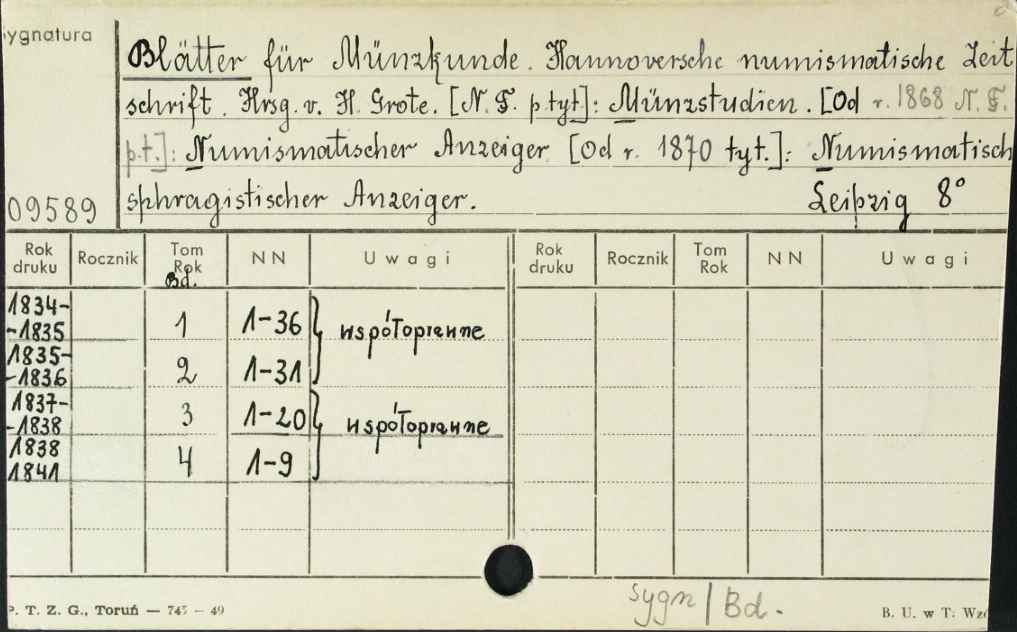 ygnatura
Blätter für Münzkunde. Hannoversche numismatische Zeit
schrift. Hrsg. v. H. Grote. [N. F. p. tyt.]: Münzstudien. [Od r. 1868 N. F.
p. t.]: Numismatischer Anzeiger [Od r. 1870 tyt.]: Numismatisch
sphragistischer Anzeiger. Leipzig 8°
09589
Rok druku Rocznik Tom Rok Bd. NN Uwagi Rok druku Rocznik Tom Rok NN Uwagi
1834-
-1835 1 1-36 współoprawne
1835-
-1836 2 1-31
1837-
-1838 3 1-20 współoprawne
1838
1841 4 1-9
P. T. Z. G., Toruń — 745 — 49
sygn/Bd.
B. U. w T. Wzó